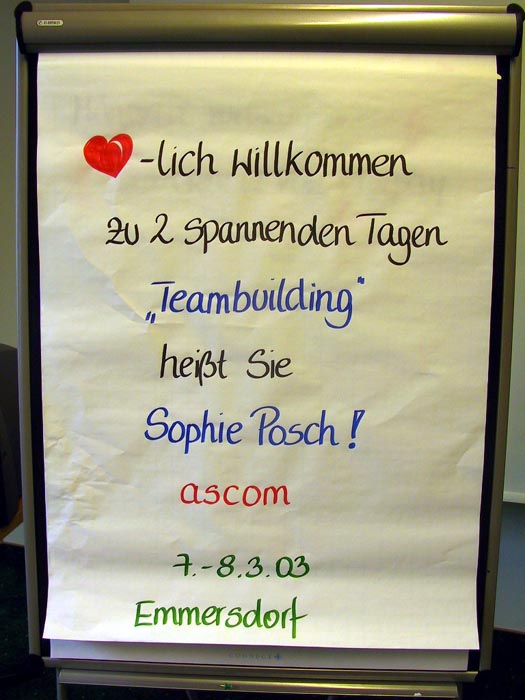 -lich Willkommen
zu 2 spannenden Tagen
„Teambuilding"
heißt Sie
Sophie Posch!
ascom
7.-8.3.03
Emmersdorf